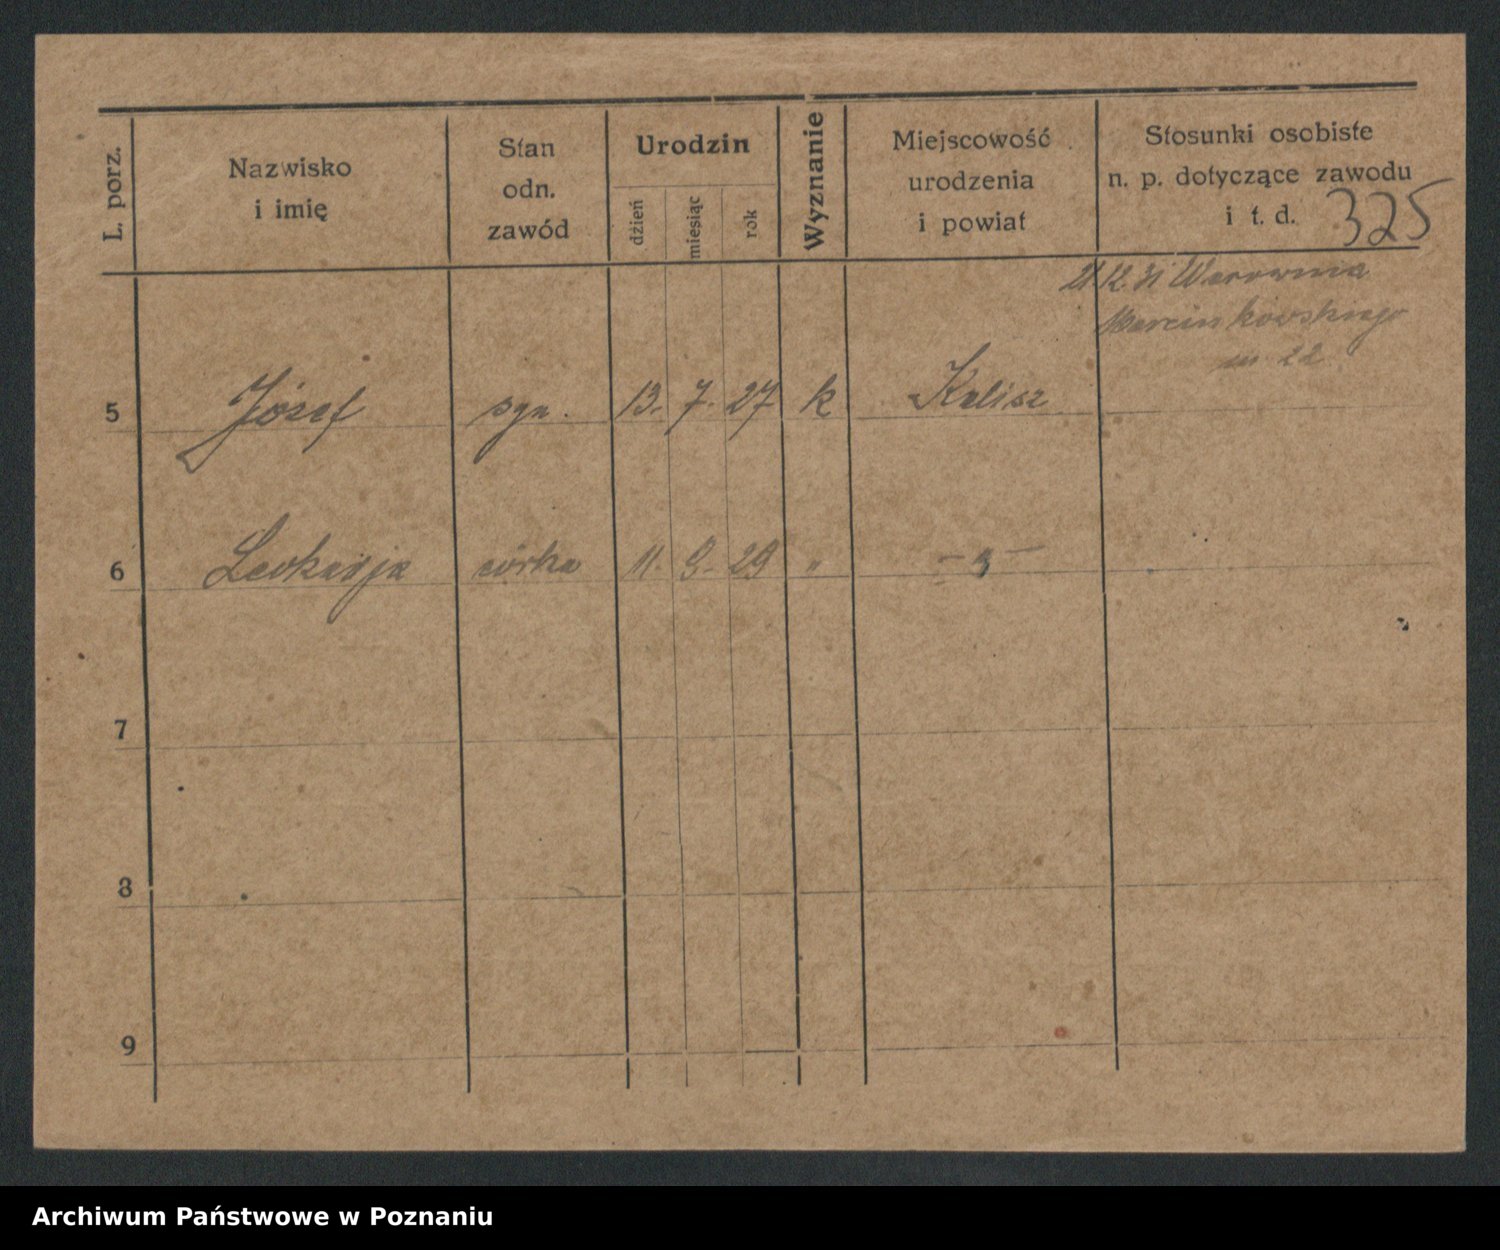 L. porz.
Nazwisko
i imię
Stan
odn.
zawód
Urodzin
dzień
miesiąc
rok
Wyznanie
Miejscowość
urodzenia
i powiat
Stosunki osobiste
n. p. dotyczące zawodu
i t. d. 325
21 12 31
Marcinkowskiego
m 22
5 Józef syn. 13. 7. 27 k Kalisz
6 córka 11. 9. 29 " — " —
7
8
9
Archiwum Państwowe w Poznaniu